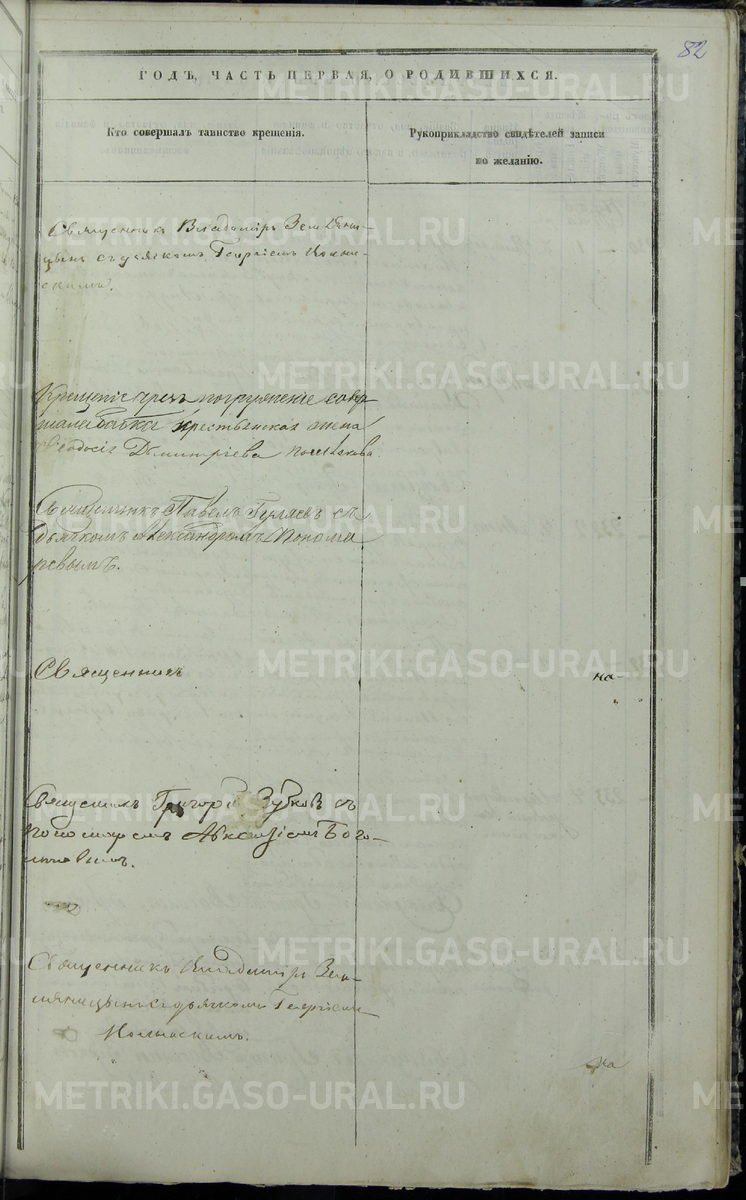 82
ГОДЪ, ЧАСТЬ ПЕРВАЯ, О РОДИВШИХСЯ.
Кто совершалъ таинство крещенія.
Рукоприкладство свидѣтелей записи
по желанію.
Священникъ Владиміръ Земляни-
цынъ съ дьячкомъ Георгіемъ
скимъ.
Крещеніе чрезъ погруженіе совер-
шала бабка крестьянская жена
Ѳеодосія Димитріева
Священникъ Павелъ съ
дьячкомъ Александромъ Понома
ревымъ.
Священникъ
на-
Священникъ Григорій Зубковъ съ
пономаремъ Бого-
Священникъ Владиміръ Зем-
ляницынъ съ дьячкомъ Георгіемъ
на
METRIKI.GASO-URAL.RU